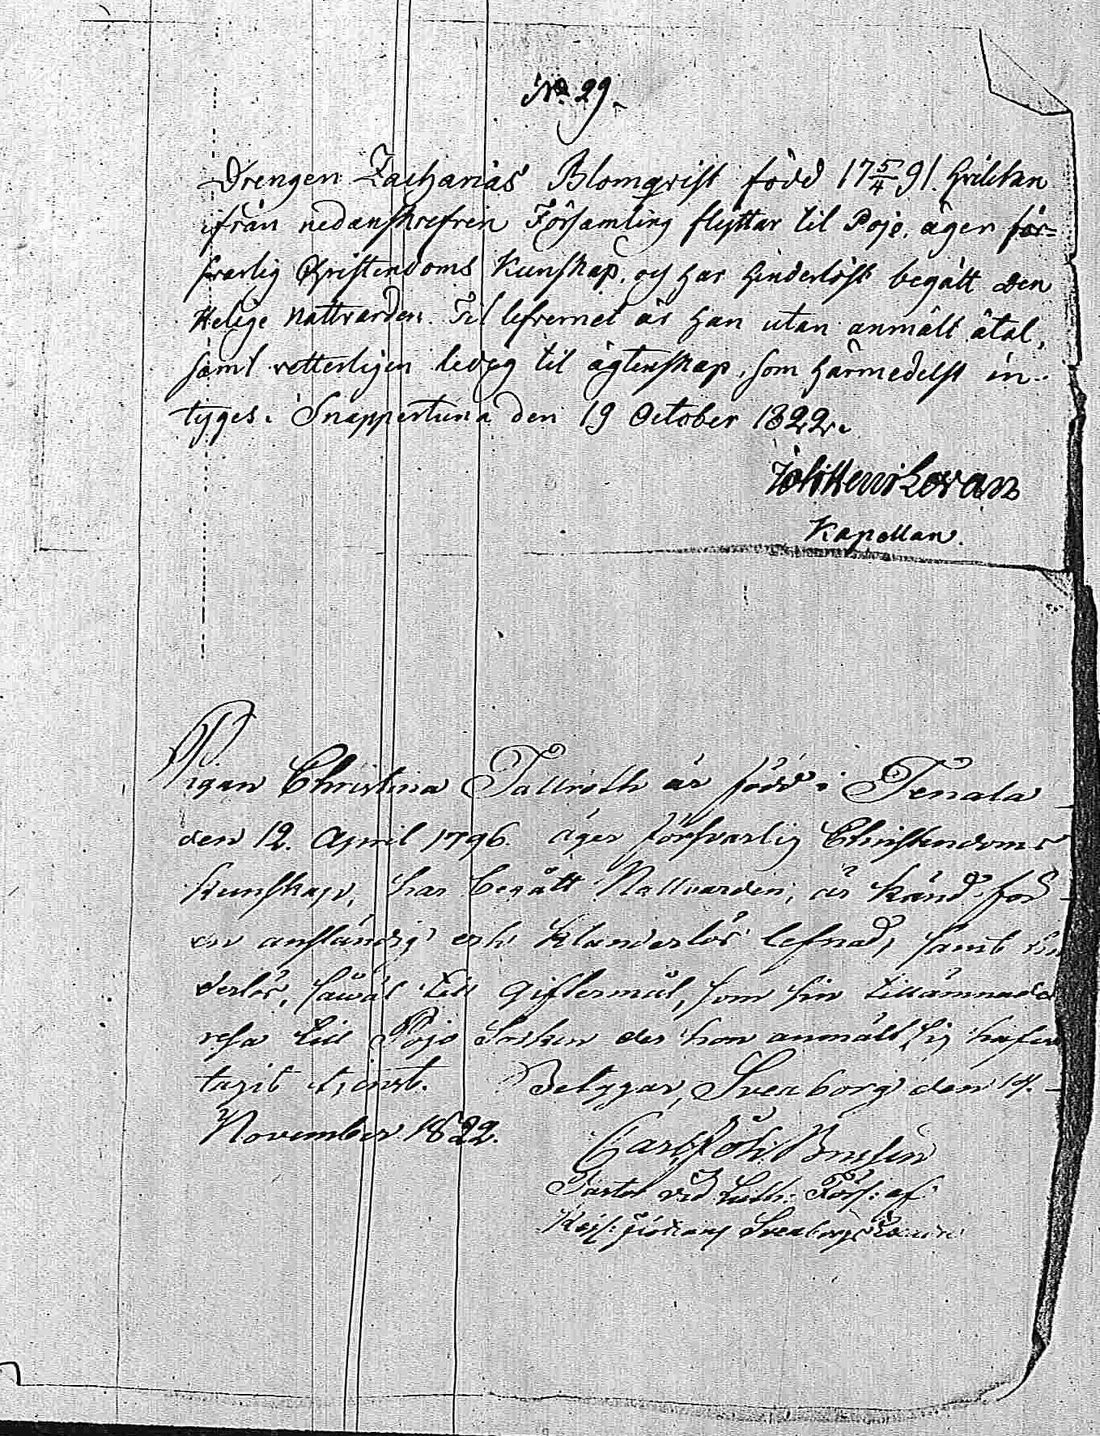 No 29.
Drengen Zacharias Blomqvist född 17 5/4 91. hvilken
ifrån nedanskrefven Församling flyttar til Pojo, äger för-
svarlig Christendoms Kunskap, och har hinderlöst begått den
Helige Nattvarden. Til lefvernet är han utan anmält åtal,
samt retterligen ledig til ägtenskap, som härmedelst in-
tyges i Snappertuna den 19 October 1822.
Kapellan.
Pigan Christina Tallroth är född i Tenala
den 12. April 1796. äger försvarlig Christendoms
kunskap, har begått Nattvarden, är känd för
en anständig och klanderlös lefnad, samt hin
derlös, såwäl till giftermål, som sin tillämnade
resa till Pojo Socken der hon anmält sig hafva
tagit tjenst. Betygar, Sveaborg den 14.
November 1822.
Carl Joh:
Pastor vid Luth: Förs: af
Sveaborgs